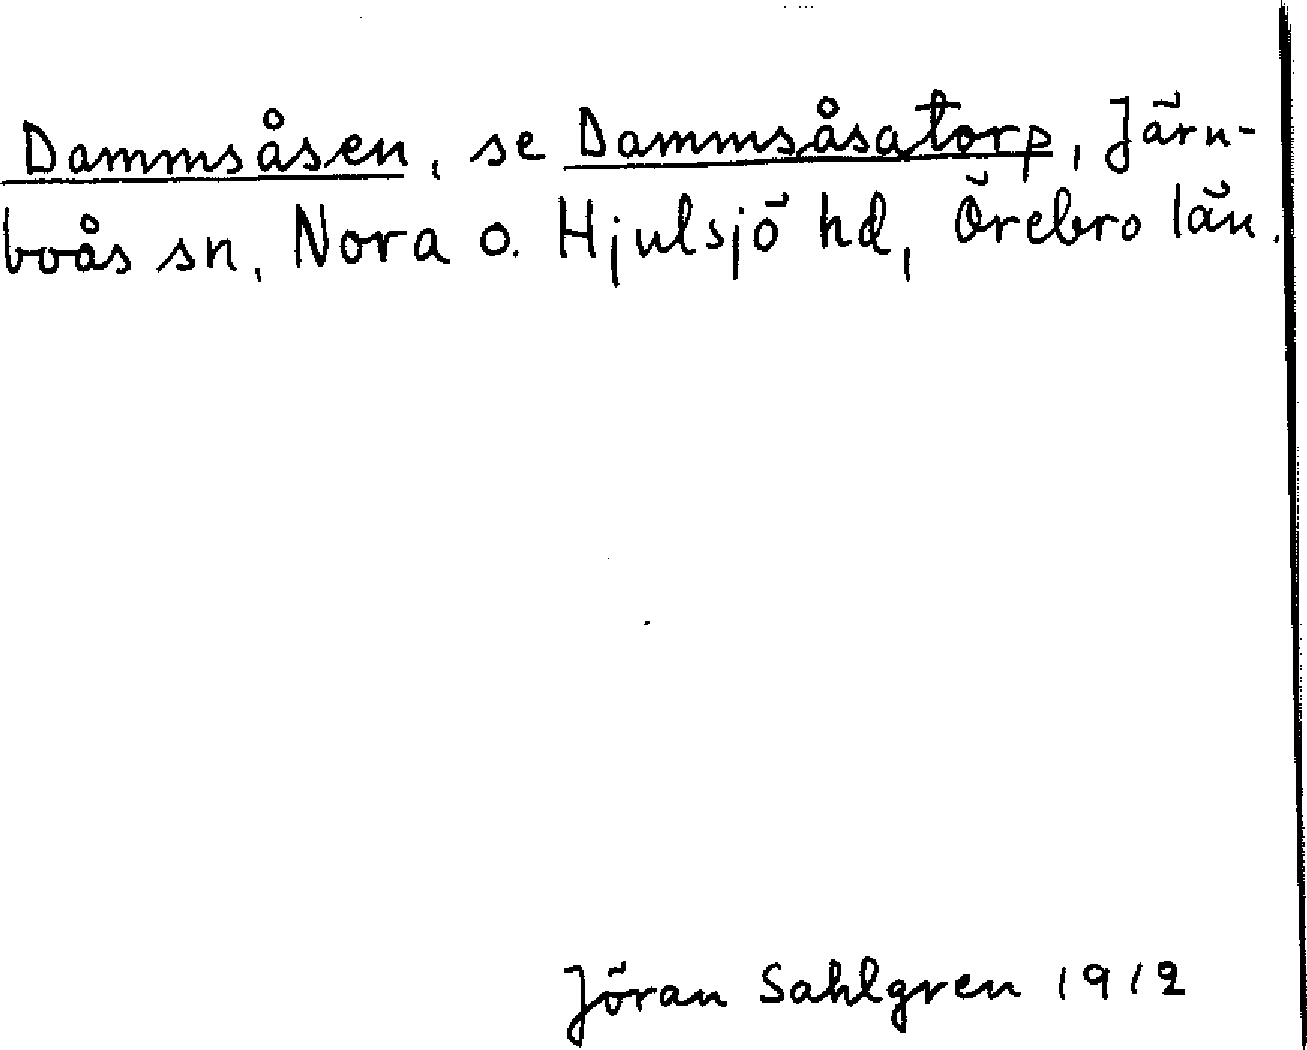 Dammsåsen, se Dammsåsatorp, Järn-
boås sn, Nora o. Hjulsjö hd, Örebro län.
Jöran Sahlgren 1912